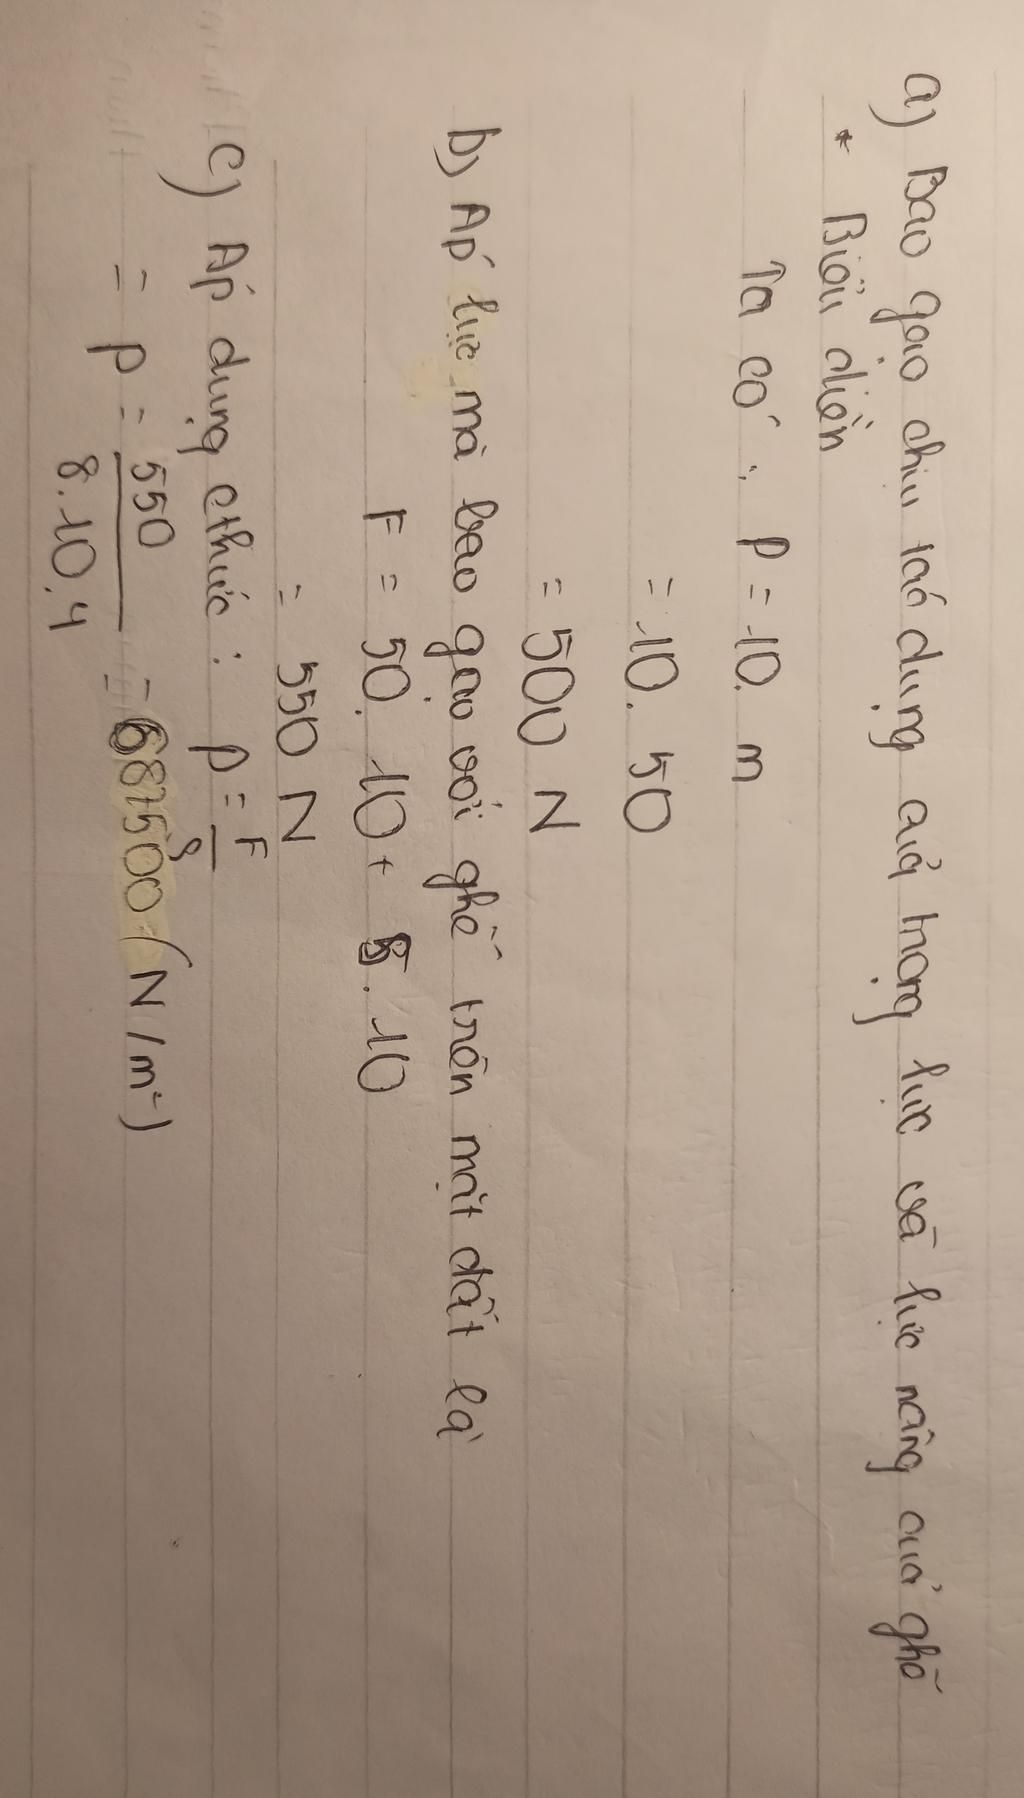 a) Bao gạo chịu tác dụng của trọng lực và lực nâng của ghế
* Biểu diễn
Ta có : P = 10. m
= 10. 50
= 500 N
b) Áp lực mà bao gạo với ghế trên mặt đất là
F = 50. 10 + 5. 10
= 550 N
c) Áp dụng cthức : p = F/S
= p = 550/8.10.4 = 687500 (N/m²)